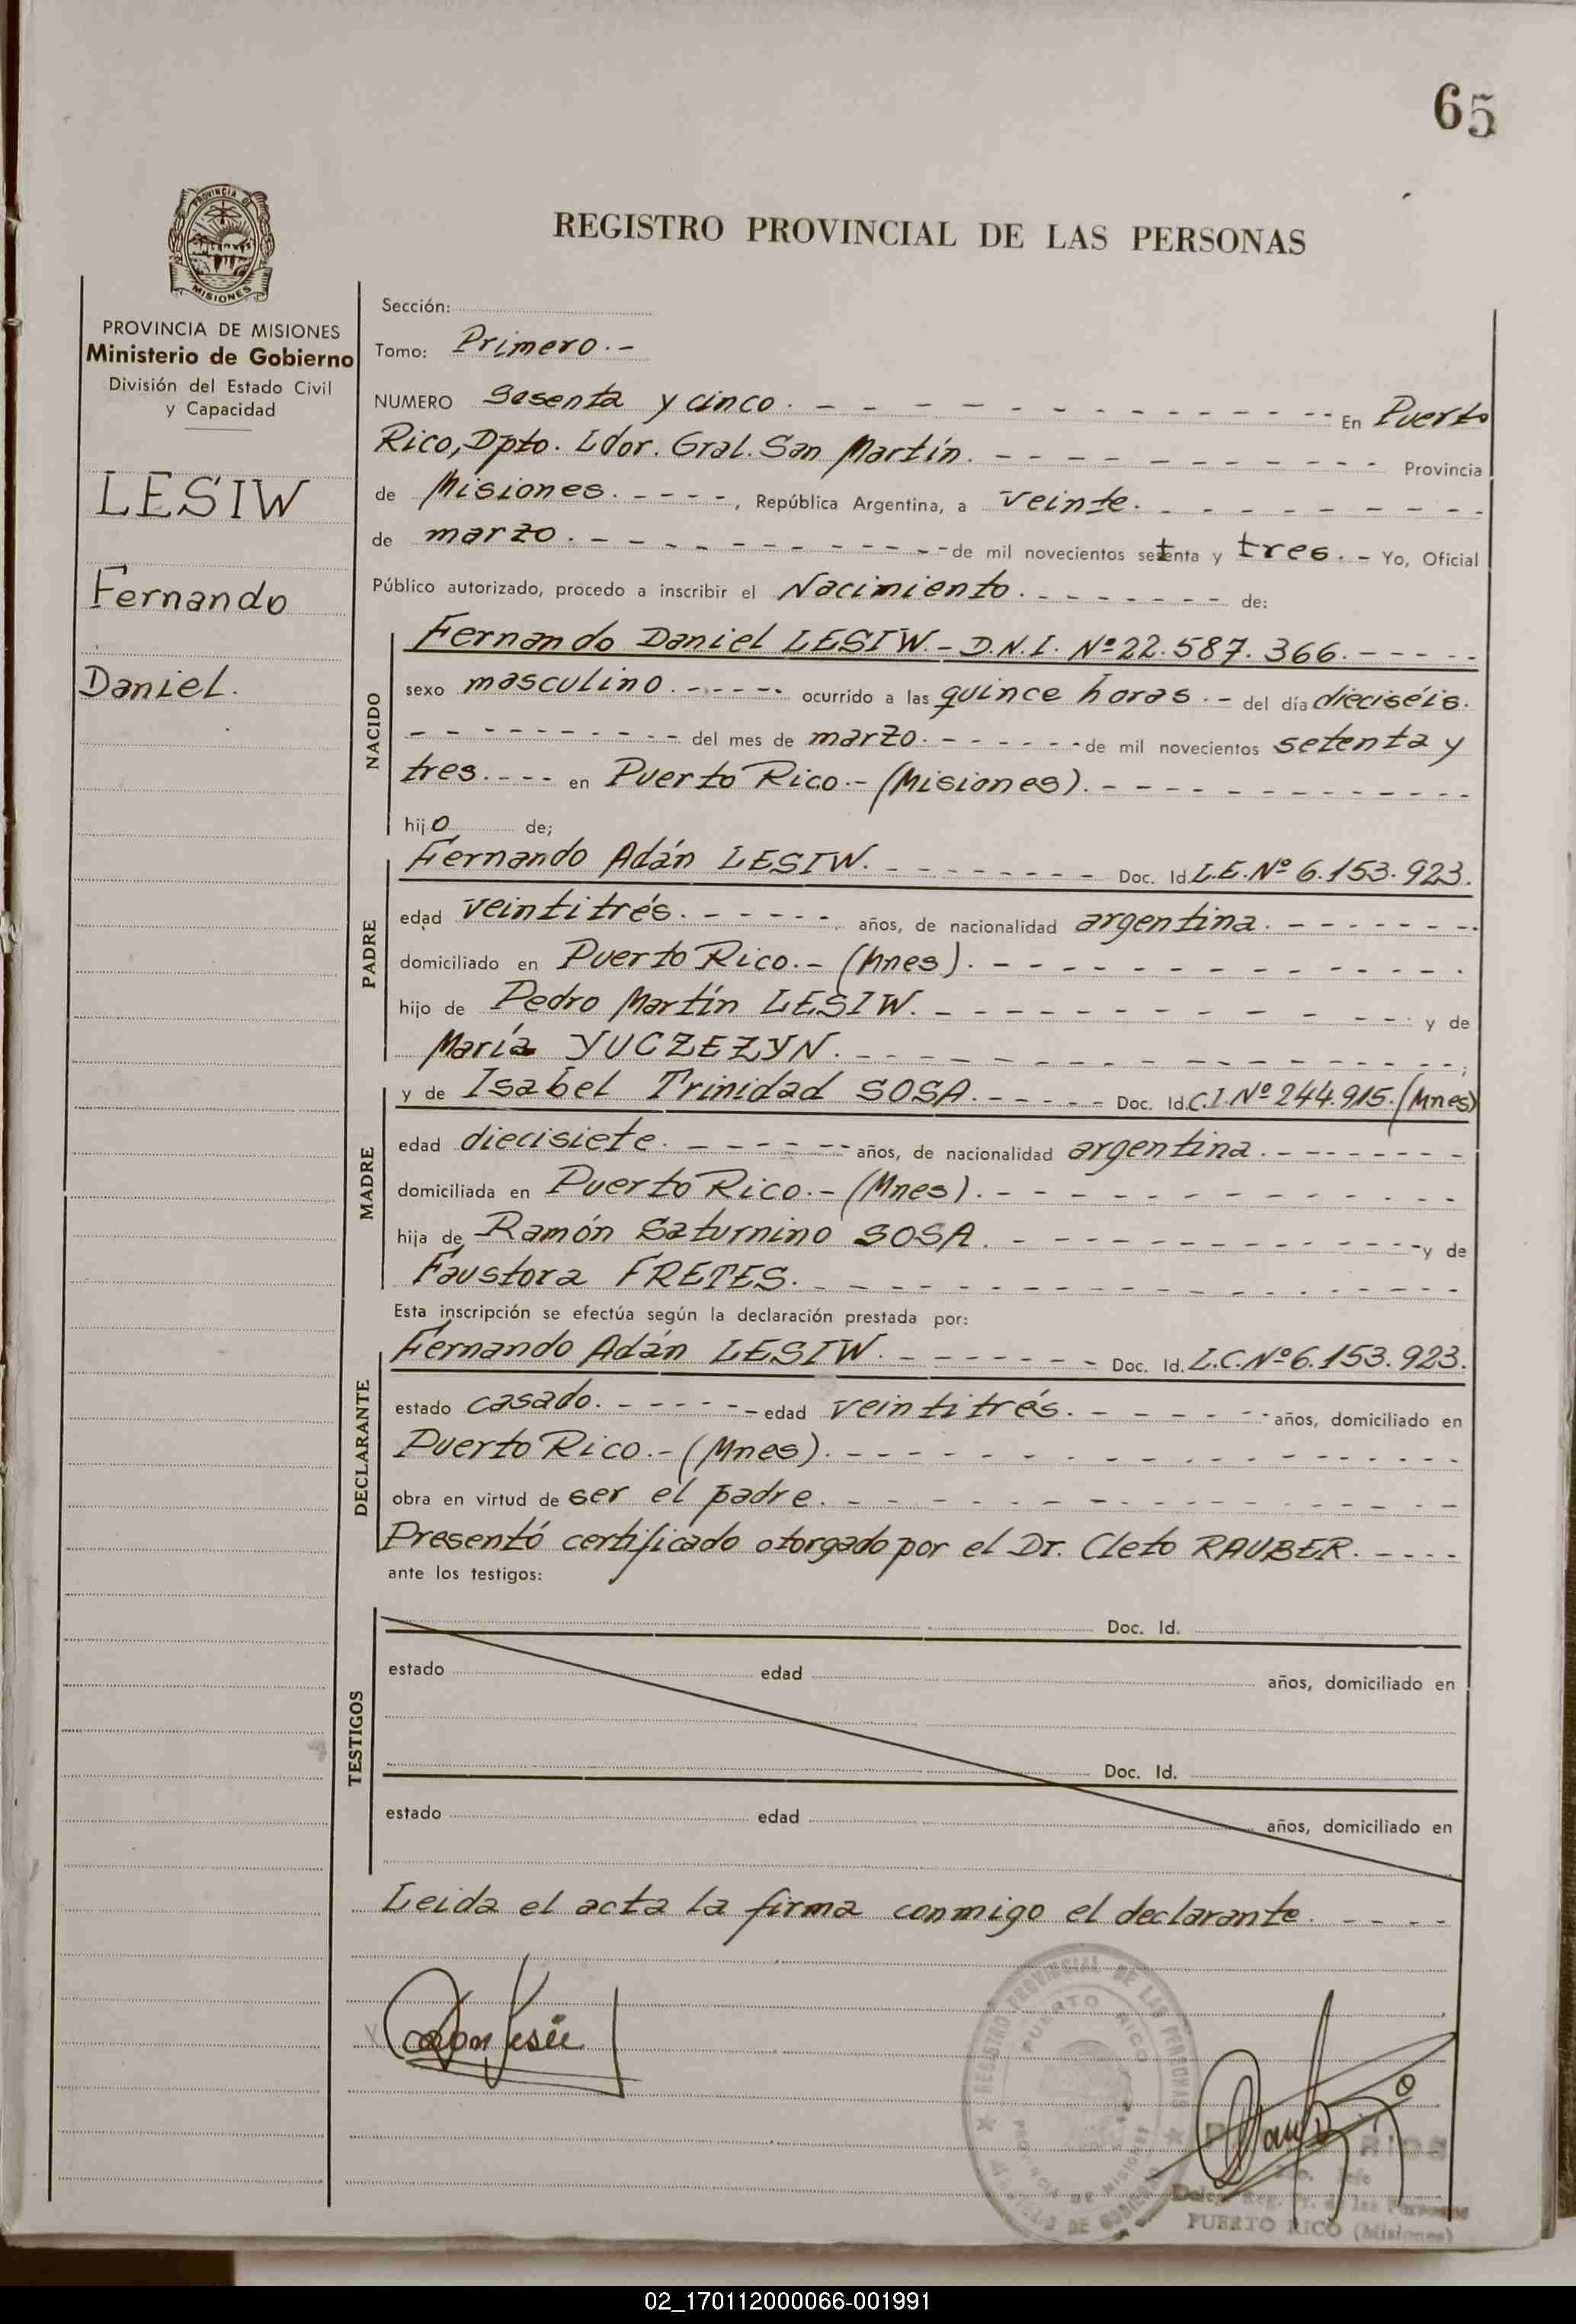 65
PROVINCIA DE
MISIONES
REGISTRO PROVINCIAL DE LAS PERSONAS
PROVINCIA DE MISIONES
Ministerio de Gobierno
División del Estado Civil
y Capacidad
LESIW
Fernando
Daniel.
Sección:
Tomo: Primero.-
NUMERO Sesenta y cinco. - - - - - - - - - - - - - En Puerto
Rico, Dpto. Ldor. Gral. San Martín. - - - - - - - - - - - Provincia
de Misiones. - - - -, República Argentina, a veinte. - - - - - - - - -
de marzo. - - - - - - - - - - - - de mil novecientos setenta y tres. - Yo, Oficial
Público autorizado, procedo a inscribir el Nacimiento. - - - - - - - - de:
NACIDO
Fernando Daniel LESIW.- D.N.I. Nº 22.587.366. - - - - -
sexo masculino. - - - - - ocurrido a las quince horas. - del día dieciséis.
- - - - - - - - - - - del mes de marzo. - - - - - - - de mil novecientos setenta y
tres. - - - - en Puerto Rico.- (Misiones). - - - - - - - - - - - - -
hijo de;
PADRE
Fernando Adán LESIW. - - - - - - - - - Doc. Id. L.E. Nº 6.153.923.
edad veintitrés. - - - - - - años, de nacionalidad argentina. - - - - - - - -
domiciliado en Puerto Rico.- (Mnes). - - - - - - - - - - - - - -
hijo de Pedro Martín LESIW. - - - - - - - - - - - - - y de
María YUCZEZYN. - - - - - - - - - - - - - - - - - ;
MADRE
y de Isabel Trinidad SOSA. - - - - - - Doc. Id. C.I. Nº 244.915. (Mnes)
edad diecisiete. - - - - - - - años, de nacionalidad argentina. - - - - - - - -
domiciliada en Puerto Rico.- (Mnes). - - - - - - - - - - - - -
hija de Ramón Saturnino SOSA. - - - - - - - - - - - - - y de
Faustora FRETES. - - - - - - - - - - - - - - - - -
Esta inscripción se efectúa según la declaración prestada por:
DECLARANTE
Fernando Adán LESIW. - - - - - - - - Doc. Id. L.C. Nº 6.153.923.
estado casado. - - - - - - edad veintitrés. - - - - - - años, domiciliado en
Puerto Rico.- (Mnes). - - - - - - - - - - - - - - - - -
obra en virtud de ser el padre. - - - - - - - - - - - - - - -
Presentó certificado otorgado por el Dr. Cleto RAUBER. - - - -
ante los testigos:
TESTIGOS
Doc. Id.
estado edad años, domiciliado en
Doc. Id.
estado edad años, domiciliado en
Leida el acta la firma conmigo el declarante. - - - -
REGISTRO PROVINCIAL DE LAS PERSONAS
PUERTO RICO
PROVINCIA DE MISIONES
RIOS
Jefe
Deleg. Reg. Pr. de las Personas
PUERTO RICO (Misiones)
02_170112000066-001991